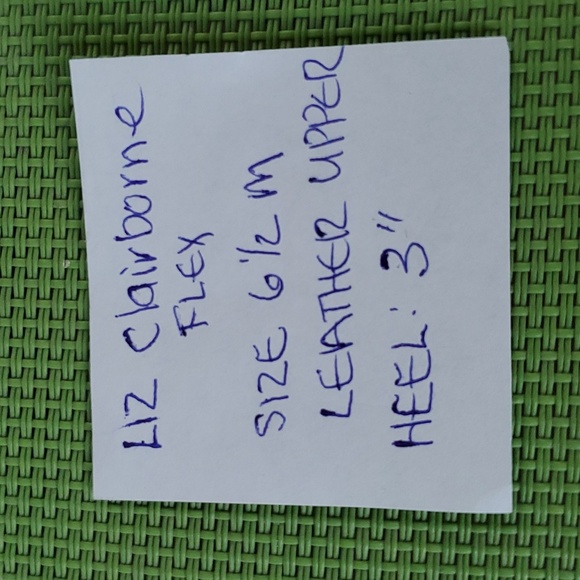 LIZ Clairborne
FLEX
SIZE 6 1/2 M
LEATHER UPPER
HEEL: 3"